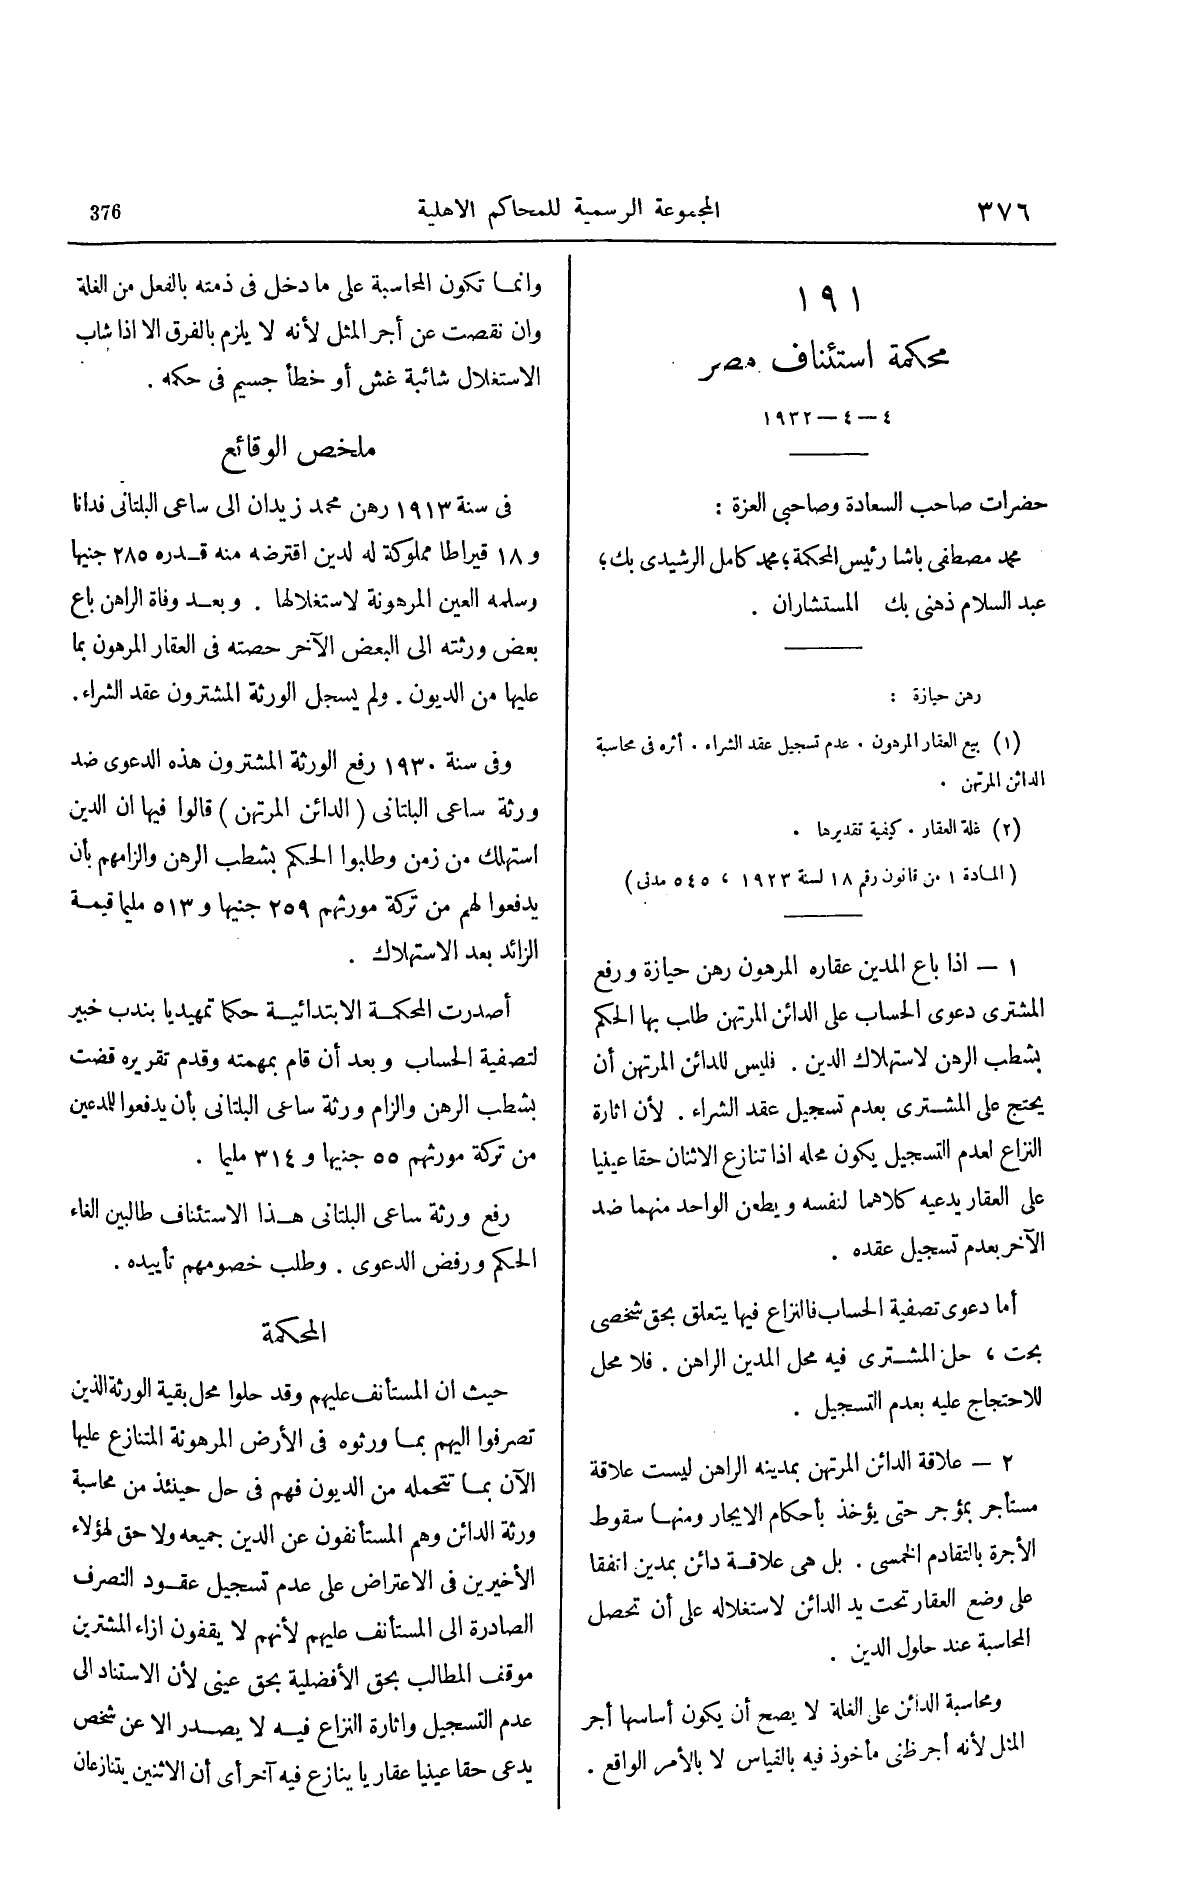 ٣٧٦
المجموعة الرسمية للمحاكم الاهلية
376
١٩١
محكمة استئناف مصر
٤ – ٤ – ١٩٣٢
حضرات صاحب السعادة وصاحبى العزة :
محمد مصطفى باشا رئيس المحكمة ؛ محمد كامل الرشيدى بك ؛
عبد السلام ذهنى بك المستشاران .
رهن حيازة :
(١) بيع العقار المرهون . عدم تسجيل عقد الشراء . أثره فى محاسبة
الدائن المرتهن .
(٢) غلة العقار . كيفية تقديرها .
( المادة ١ من قانون رقم ١٨ لسنة ١٩٢٣ ، ٥٤٥ مدنى )
١ – اذا باع المدين عقاره المرهون رهن حيازة ورفع
المشترى دعوى الحساب على الدائن المرتهن طلب بها الحكم
بشطب الرهن لاستهلاك الدين . فليس للدائن المرتهن أن
يحتج على المشترى بعدم تسجيل عقد الشراء . لأن اثارة
النزاع لعدم التسجيل يكون محله اذا تنازع الاثنان حقا عينيا
على العقار يدعيه كلاهما لنفسه ويطعن الواحد منهما ضد
الآخر بعدم تسجيل عقده .
أما دعوى تصفية الحساب فالنزاع فيها يتعلق بحق شخصى
بحت ، حل المشترى فيه محل المدين الراهن . فلا محل
للاحتجاج عليه بعدم التسجيل .
٢ – علاقة الدائن المرتهن بمدينه الراهن ليست علاقة
مستأجر بمؤجر حتى يؤخذ بأحكام الايجار ومنها سقوط
الأجرة بالتقادم الخمسى . بل هى علاقة دائن بمدين اتفقا
على وضع العقار تحت يد الدائن لاستغلاله على أن تحصل
المحاسبة عند حلول الدين .
ومحاسبة الدائن على الغلة لا يصح أن يكون أساسها أجر
المثل لأنه أجر ظنى مأخوذ فيه بالقياس لا بالأمر الواقع .
وانما تكون المحاسبة على ما دخل فى ذمته بالفعل من الغلة
وان نقصت عن أجر المثل لأنه لا يلزم بالفرق الا اذا شاب
الاستغلال شائبة غش أو خطأ جسيم فى حكمه .
ملخص الوقائع
فى سنة ١٩١٣ رهن محمد زيدان الى ساعى البلتانى فدانا
و ١٨ قيراطا مملوكة له لدين اقترضه منه قدره ٢٨٥ جنيها
وسلمه العين المرهونة لاستغلالها . وبعد وفاة الراهن باع
بعض ورثته الى البعض الآخر حصته فى العقار المرهون بما
عليها من الديون . ولم يسجل الورثة المشترون عقد الشراء .
وفى سنة ١٩٣٠ رفع الورثة المشترون هذه الدعوى ضد
ورثة ساعى البلتانى ( الدائن المرتهن ) قالوا فيها ان الدين
استهلك من زمن وطلبوا الحكم بشطب الرهن والزامهم بأن
يدفعوا لهم من تركة مورثهم ٢٥٩ جنيها و ٥١٣ مليما قيمة
الزائد بعد الاستهلاك .
أصدرت المحكمة الابتدائية حكما تمهيديا بندب خبير
لتصفية الحساب وبعد أن قام بمهمته وقدم تقريره قضت
بشطب الرهن والزام ورثة ساعى البلتانى بأن يدفعوا للمدعين
من تركة مورثهم ٥٥ جنيها و ٣١٤ مليما .
رفع ورثة ساعى البلتانى هذا الاستئناف طالبين الغاء
الحكم ورفض الدعوى . وطلب خصومهم تأييده .
المحكمة
حيث ان المستأنف عليهم وقد حلوا محل بقية الورثة الذين
تصرفوا اليهم بما ورثوه فى الأرض المرهونة المتنازع عليها
الآن بما تتحمله من الديون فهم فى حل حينئذ من محاسبة
ورثة الدائن وهم المستأنفون عن الدين جميعه ولا حق لهؤلاء
الأخيرين فى الاعتراض على عدم تسجيل عقود التصرف
الصادرة الى المستأنف عليهم لأنهم لا يقفون ازاء المشترين
موقف المطالب بحق الأفضلية بحق عينى لأن الاستناد الى
عدم التسجيل واثارة النزاع فيه لا يصدر الا عن شخص
يدعى حقا عينيا عقاريا ينازع فيه آخر أى أن الاثنين يتنازعان